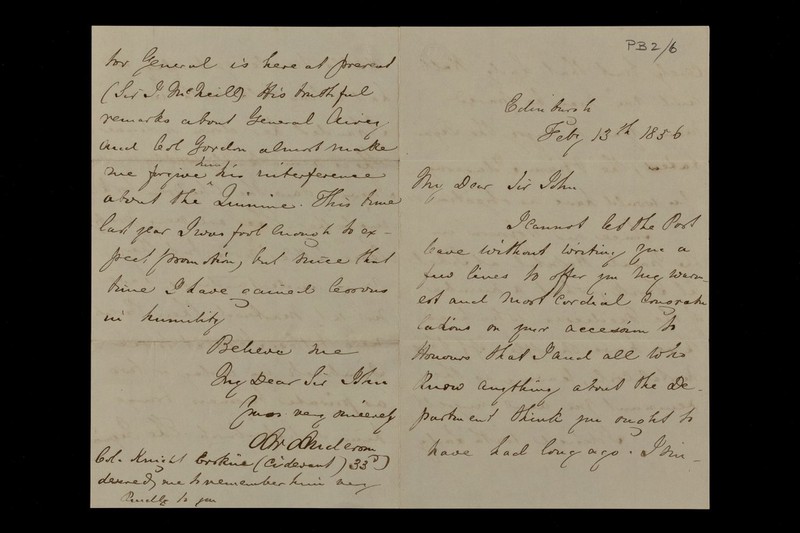 PB2/6
Edinburgh
Feby 13th 1856
My Dear Sir John
I cannot let the Post
leave without writing you a
few lines to offer you my warm-
est and most cordial congratu
lations on your accession to
Honours that I and all who
know anything about the De-
partment think you ought to
have had long ago. I sin-
tor General is here at present
(Sir J. McNeill) His truthful
remarks about General Airey
and Col Gordon almost make
me forgive him his interference
about the Quinine. This time
last year I was fool enough to ex-
pect promotion, but since that
time I have gained lessons
in humility
Believe me
My Dear Sir John
Yours very sincerely
Anderson
Col. Knight Erskine (Ci devant) 33d
desired me to remember him very
kindly to you